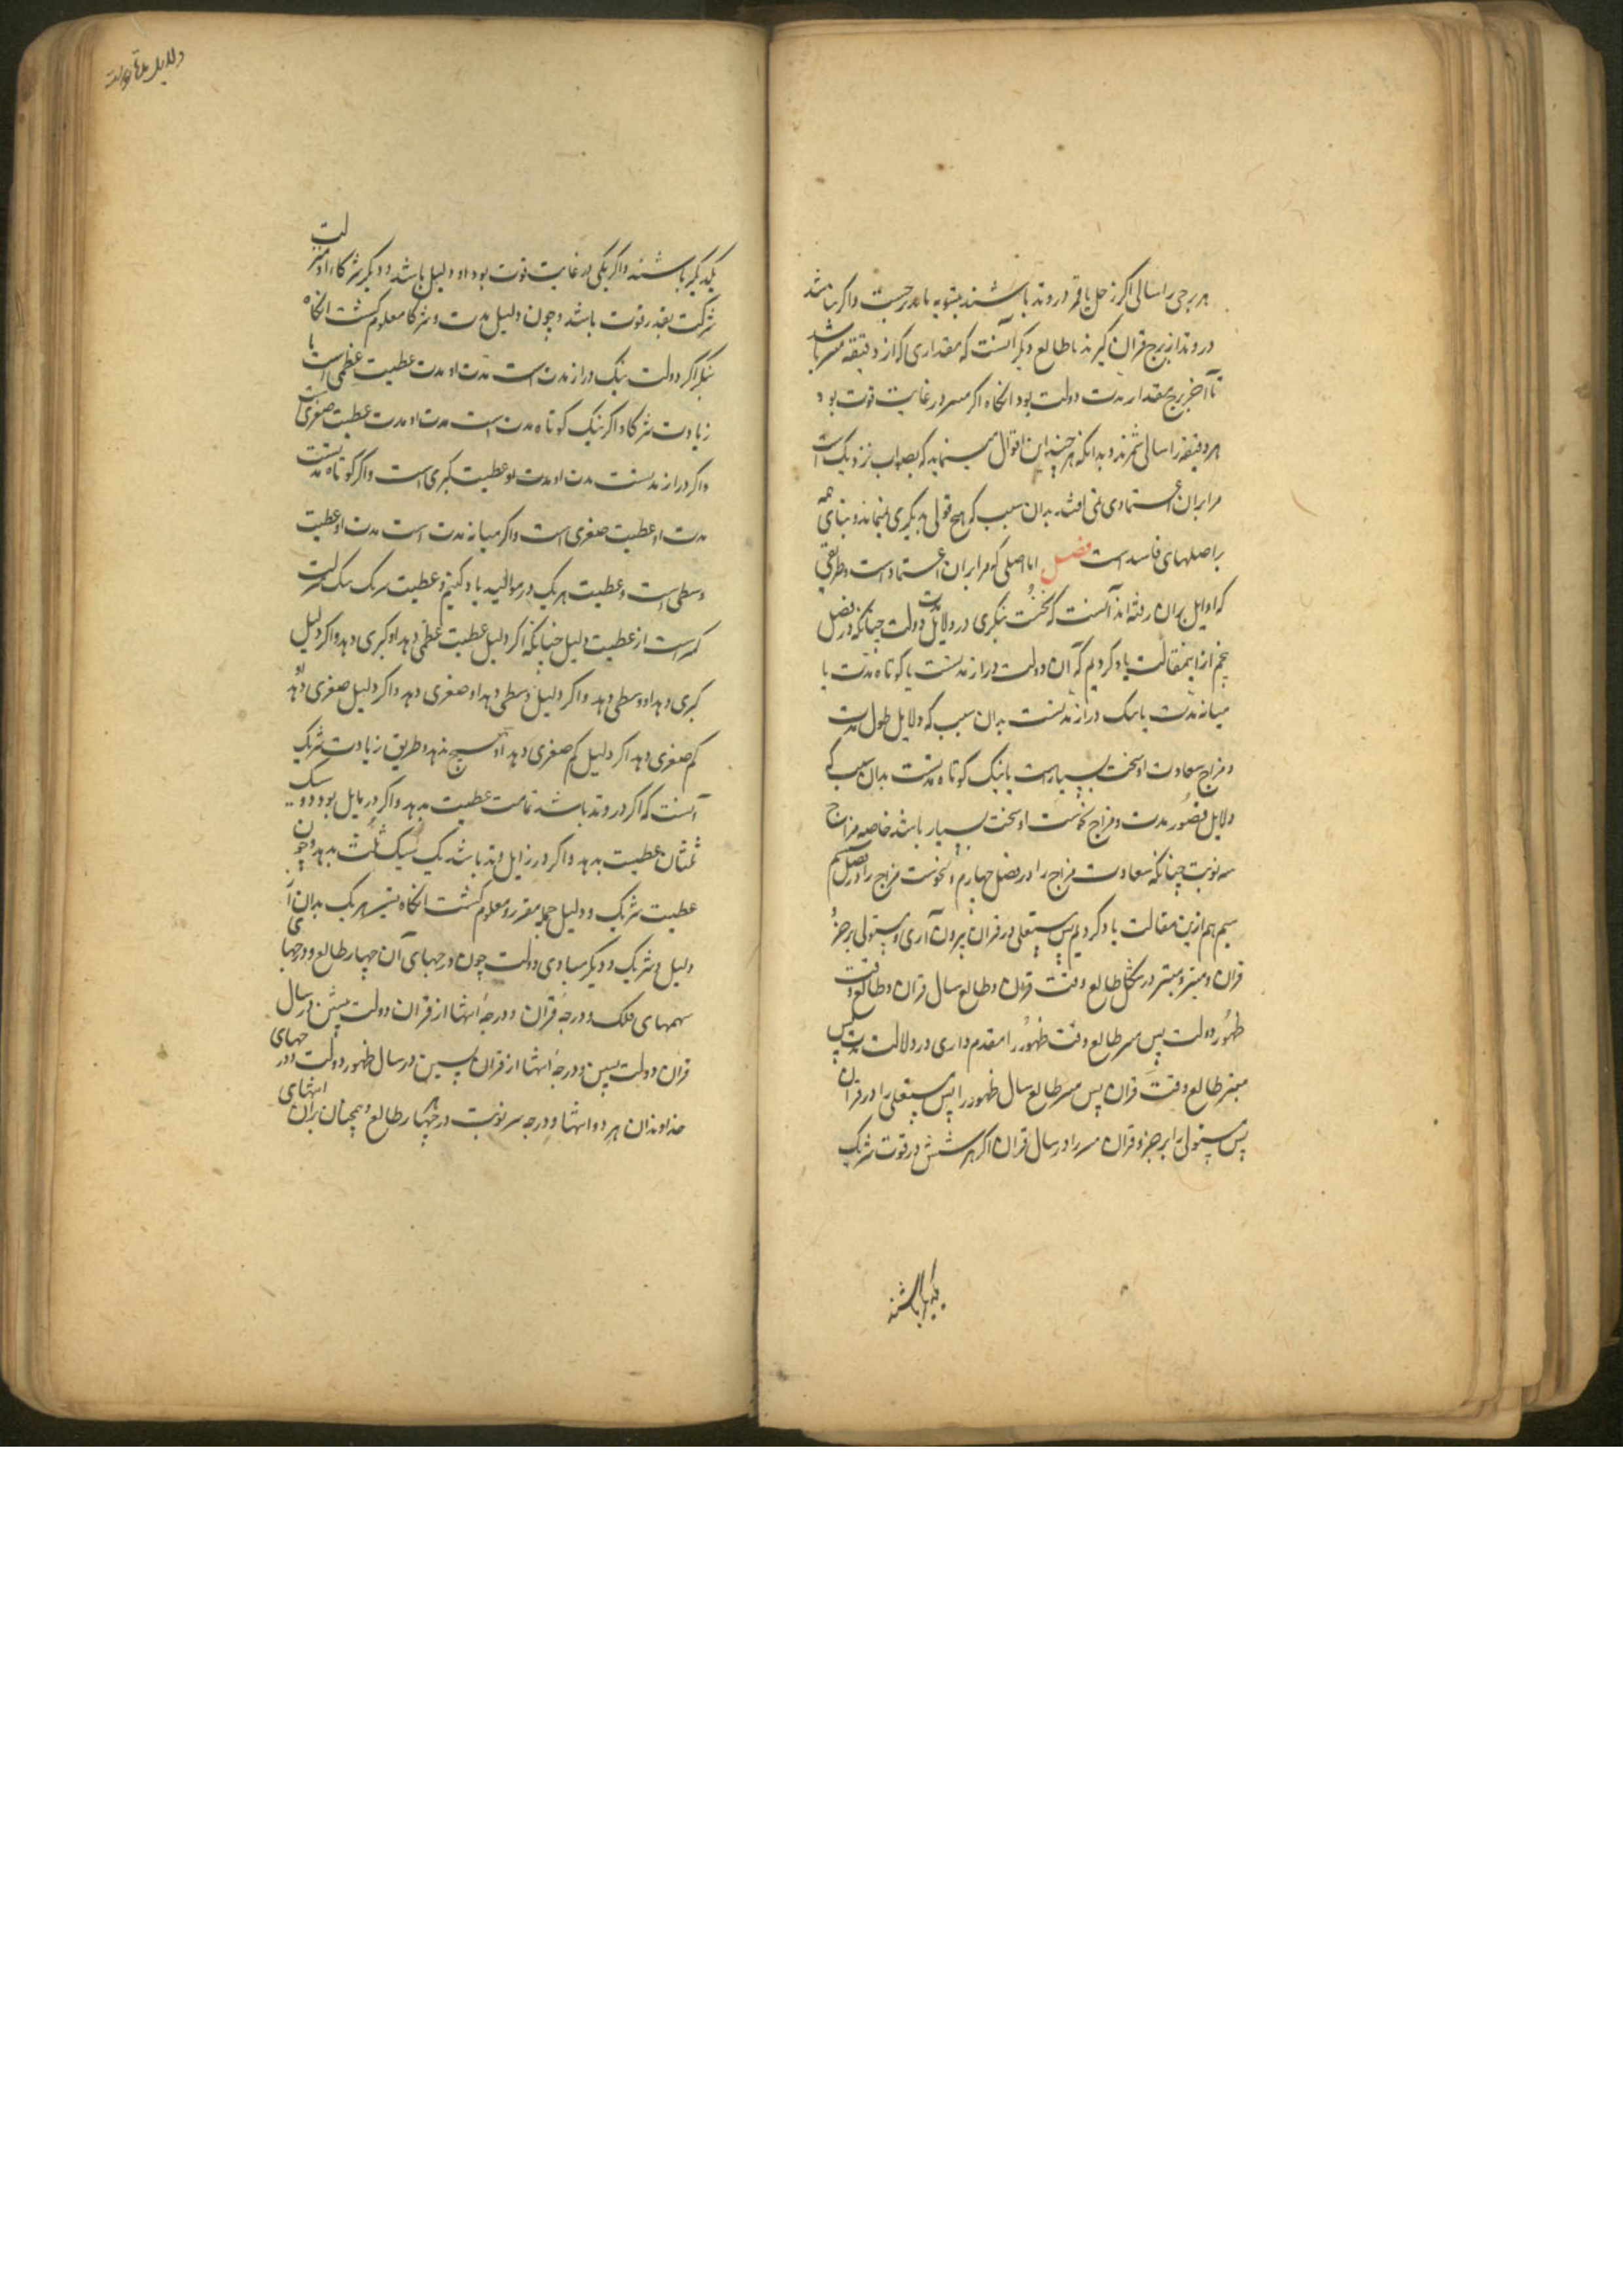 هر برجی را سالی اگر زحل یا قمر در وتد باشند بتسویه باید جست و اگر نباشد
در وتد از برج قران گیرند تا طالع و دیگر آنست که مقداری که از دقیقه مسیر باشد
تا آخر برج مقدار مدت دولت بود انکاه اکر مسر در غایت قوت بود
هر دقیقه را سالی شمرند و بدانکه هر چند این اقوال مینماید که بصواب نزدیک است
مرا بران اعتمادی نمی افتد بدان سبب که هیچ قولی بدیگری نمیماند و بنای همه
بر اصلهای فاسد است فصل اما اصلی که مرا بران اعتماد است و طریقی
که اوایل بران رفته اند آنست که نخست بنکری در دلایل دولت چنانکه در فصل
پنجم از اینمقالت یاد کردیم که آن دولت دراز مدتست یا کوتاه مدت یا
میانه مدت یا نیک دراز مدتست بدان سبب که دلایل طول مدت
و مزاج سعادت او سخت بسیارست یا نیک کوتاه مدتست بدان سبب که
دلایل قصور مدت و مزاج نحوست او سخت بسیار باشد خاصه مزاج
سه نوبت چنانکه سعادت مزاج را در فصل چهارم و نحوست مزاج را در فصل
سیم هم ازین مقالت یاد کردیم پس مستعلی در قران بیرون آری و مستولی بر جزو
قران و مبتز و مبتز در شکل طالع وقت قران و طالع سال قران و طالع وقت
ظهور دولت پس مسر طالع وقت ظهور را مقدم داری در دلالت مدت پس
مبتز طالع وقت قران پس مسر طالع سال ظهور را پس مستعلی را در قران
پس مستولی را بر جزو قران مسر را در سال قران اکر هر شش در قوت شریک
یکدیگر باشند
دلایل بقا دولت
یکدیگر باشند و اکر یکی در غایت قوت بود او دلیل باشد و دیگر شرکا و او منزلت
شرکت بقدر قوت باشد و چون دلیل مدت و شرکا معلوم کشت انکاه
بنکر اکر دولت نیک دراز مدت است مدت او مدت عطیت عظمی است با
زیادت شرکا و اکر نیک کوتاه مدت است مدت او مدت عطیت صغری است
و اکر دراز مدتست مدت او مدت عطیت کبری است و اکر کوتاه مدتست
مدت او عطیت صغری است و اکر میانه مدت است مدت او عطیت
وسطی است و عطیت هر یک در موالید یاد کنیم و عطیت شریک یک منزلت
کمتر است از عطیت دلیل چنانکه اکر دلیل عطیت عظمی دهد او کبری دهد و اکر دلیل
کبری دهد او وسطی دهد و اکر دلیل وسطی دهد او صغری دهد و اکر دلیل صغری دهد او
کم صغری دهد اکر دلیل کم صغری دهد او هیچ ندهد و طریق زیادت شریک
آنست که اکر در وتد باشد تمامت عطیت بدهد و اکر در مایل بود دو سیک
ثلثان عطیت بدهد و اکر در زایل وتد باشد یک سیک ثلث بدهد و چون
عطیت شریک و دلیل جمله مقرر و معلوم کشت انکاه تسییر هر یک بدان
دلیل و شریک و دیکر مبادی دولت چون درجهای آن چهار طالع و درجهای
سهمهای فلک و درجهٔ قران و درجهٔ انتها از قران دولت پیشین در سال
قران دولت پسین و درجهٔ انتها از قران پسین در سال ظهور دولت و درجهای
خداوندان هر دو انتها و درجه سر نوبت در هر چهار طالع و همچنان بران انتهای